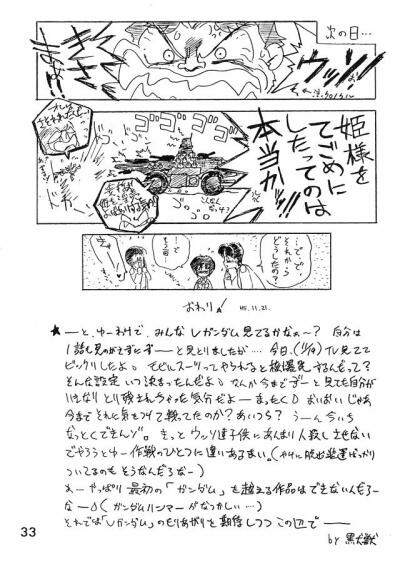 次の日…
ウッソ
姫様を
てごめに
したってのは
本当か
ゴゴゴゴ
…で、
それから
どうしたの？
おわり
H5.11.21.
★ーと、ゆーわけで、みんな Vガンダム見てるかなぁ〜？ 自分は
1話も見のがさずにずーーと見とりましたが…今日、(11/19)TV見てて
ビックリしたよ。モビルスーツってやられると核爆発するんだって？
そんな設定いつ決まったんだよ。なんか今までずーと見てた自分が
いきなりとり残されちゃった気分だよーまったく。おいおいじゃあ
今までそれに気をつけて戦ってたのか？あいつら？うーん今いち
なっとくできんゾ。きっとウッソ達子供にあんまり人殺しさせない
でやろうとゆー作戦のひとつに違いあるまい。(やけに脱出装置ばっかり
ついてるのもそうなんだろなー)
やっぱり最初の「ガンダム」を越える作品はできないんだろー
なー(ガンダムハンマーがなつかしい…)
それでは「Vガンダム」のもりあがりを期待しつつこの辺でーー
by 黒犬獣
33